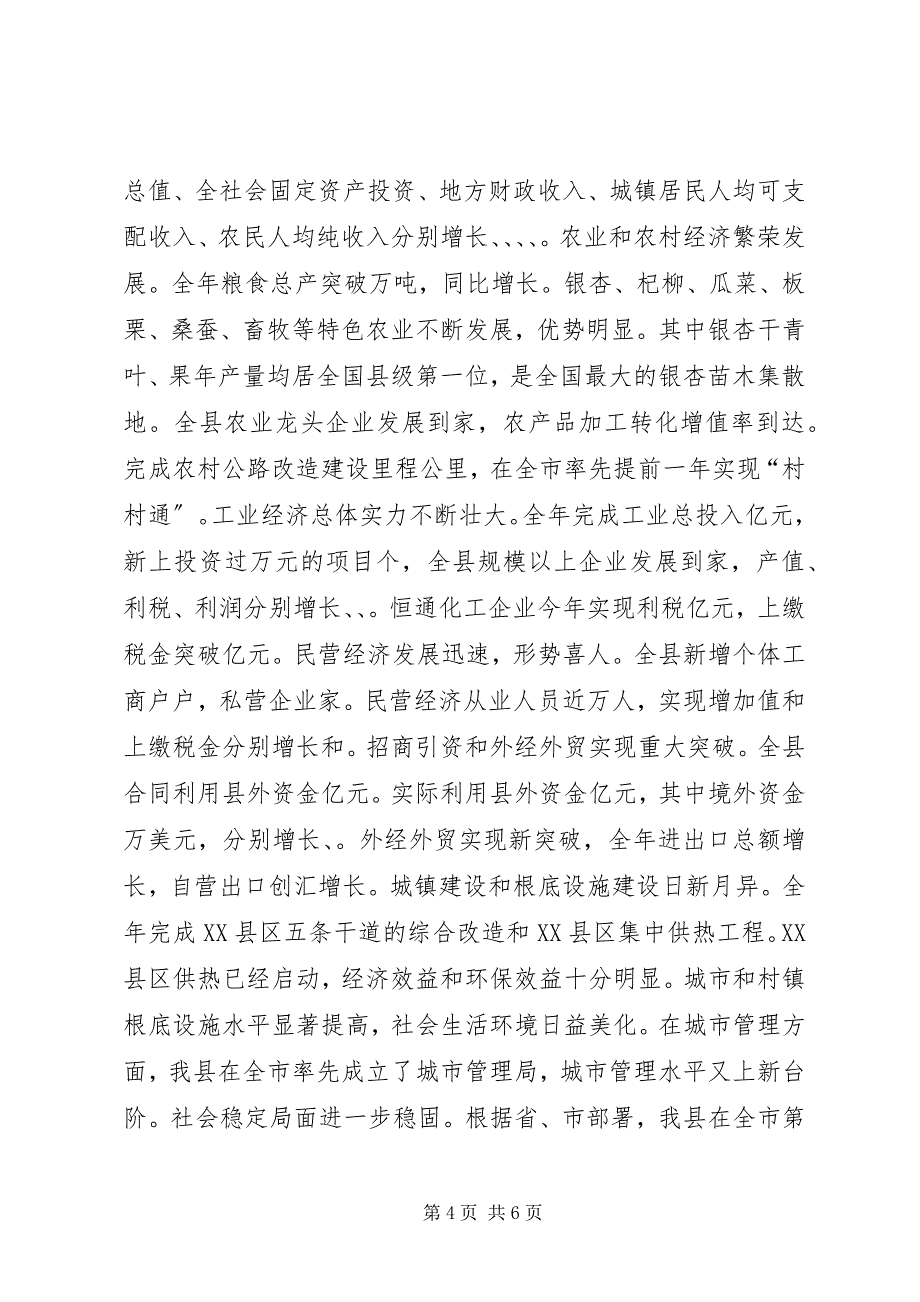 总值、全社会固定资产投资、地方财政收入、城镇居民人均可支
配收入、农民人均纯收入分别增长、、、、。农业和农村经济繁荣发
展。全年粮食总产突破万吨，同比增长。银杏、杞柳、瓜菜、板
栗、桑蚕、畜牧等特色农业不断发展，优势明显。其中银杏干青
叶、果年产量均居全国县级第一位，是全国最大的银杏苗木集散
地。全县农业龙头企业发展到家，农产品加工转化增值率到达。
完成农村公路改造建设里程公里，在全市率先提前一年实现“村
村通〞。工业经济总体实力不断壮大。全年完成工业总投入亿元，
新上投资过万元的项目个，全县规模以上企业发展到家，产值、
利税、利润分别增长、、。恒通化工企业今年实现利税亿元，上缴
税金突破亿元。民营经济发展迅速，形势喜人。全县新增个体工
商户户，私营企业家。民营经济从业人员近万人，实现增加值和
上缴税金分别增长和。招商引资和外经外贸实现重大突破。全县
合同利用县外资金亿元。实际利用县外资金亿元，其中境外资金
万美元，分别增长、。外经外贸实现新突破，全年进出口总额增
长，自营出口创汇增长。城镇建设和根底设施建设日新月异。全
年完成 XX 县区五条干道的综合改造和 XX 县区集中供热工程。XX
县区供热已经启动，经济效益和环保效益十分明显。城市和村镇
根底设施水平显著提高，社会生活环境日益美化。在城市管理方
面，我县在全市率先成立了城市管理局，城市管理水平又上新台
阶。社会稳定局面进一步稳固。根据省、市部署，我县在全市第
第 4 页 共 6 页